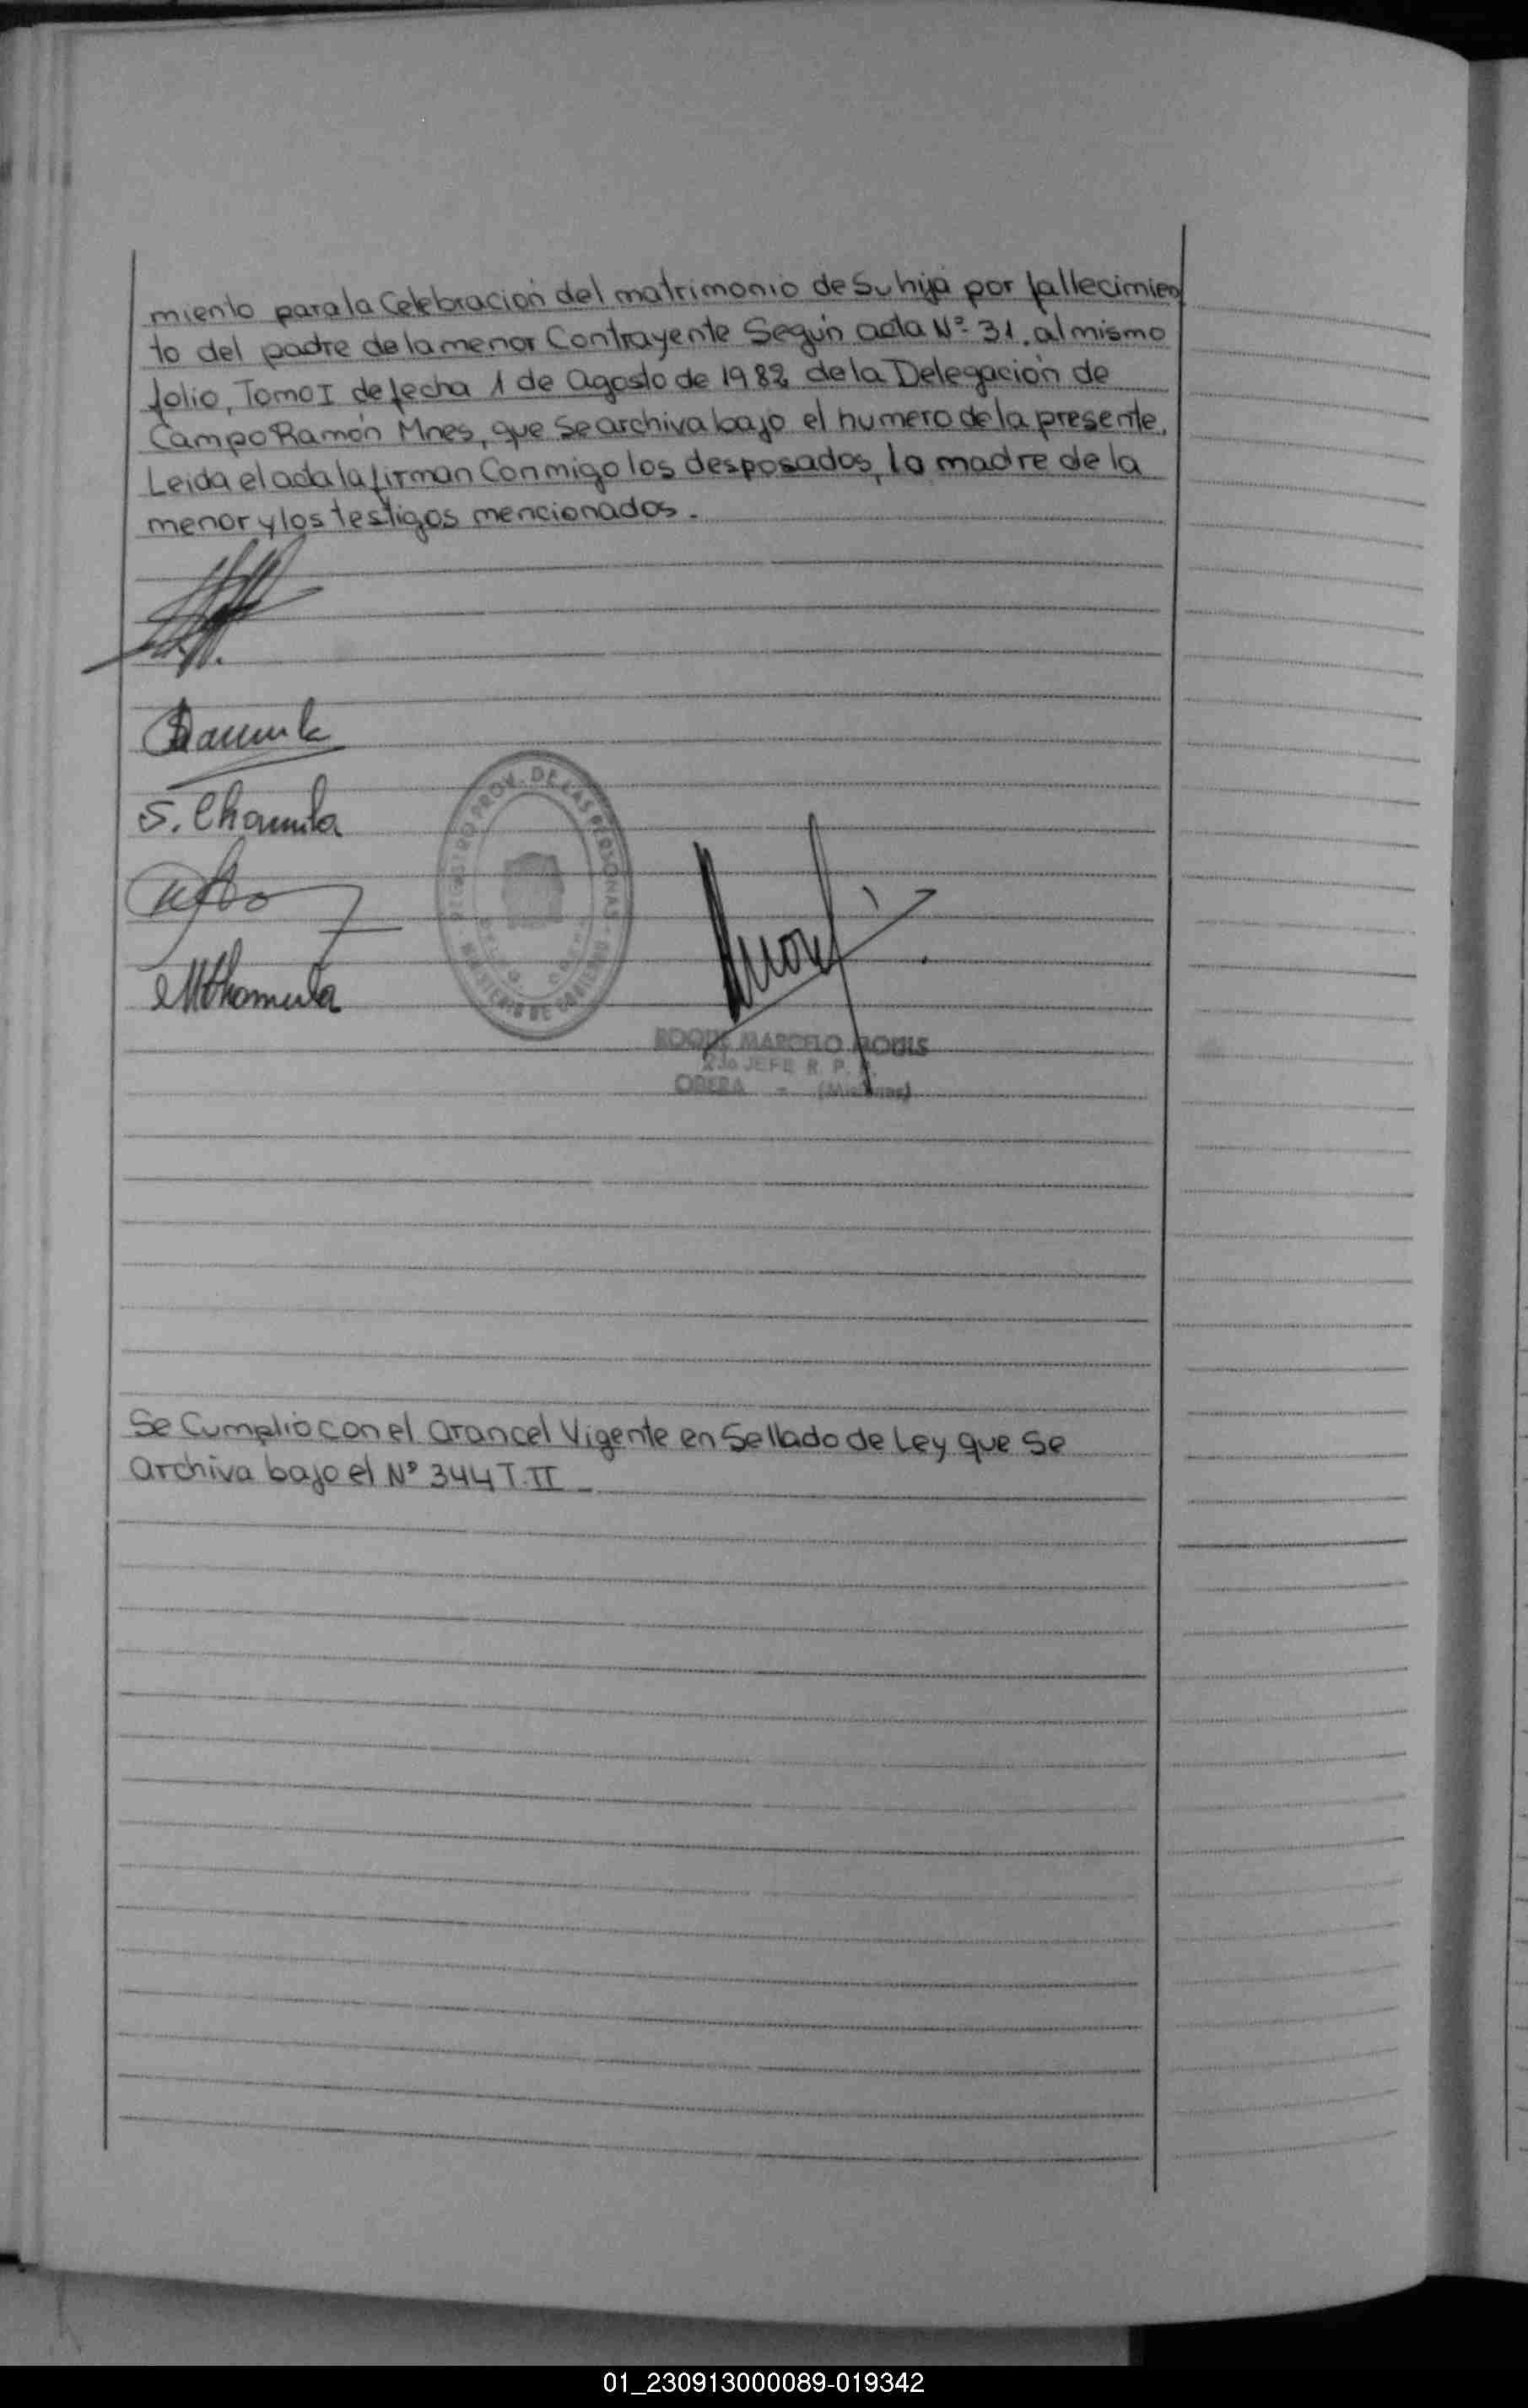 miento para la Celebración del matrimonio de Su hija por fallecimien
to del padre de la menor Contrayente Según acta Nº 31. al mismo
folio, Tomo I de fecha 1 de Agosto de 1982 de la Delegación de
Campo Ramón Mnes, que Se archiva bajo el numero de la presente.
Leida el acta la firman Conmigo los desposados, la madre de la
menor y los testigos mencionados.
S. Chamula
REGISTRO PROV. DE LAS PERSONAS
MINISTERIO DE GOBIERNO
ROQUE MARCELO
2do JEFE R. P.
OBERA - (Misiones)
Se Cumplió con el arancel Vigente en Sellado de Ley que Se
archiva bajo el Nº 344 T. II
01_230913000089-019342